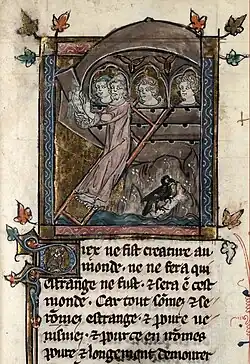 Diex ne fist creature au
monde. ne ne fera qui
estrange ne fust. & sera ē cest
monde. Car tout sōmes & se
rōmes estrange. & poure ve
nismes. & pour ce en irōmes
poure & demourer